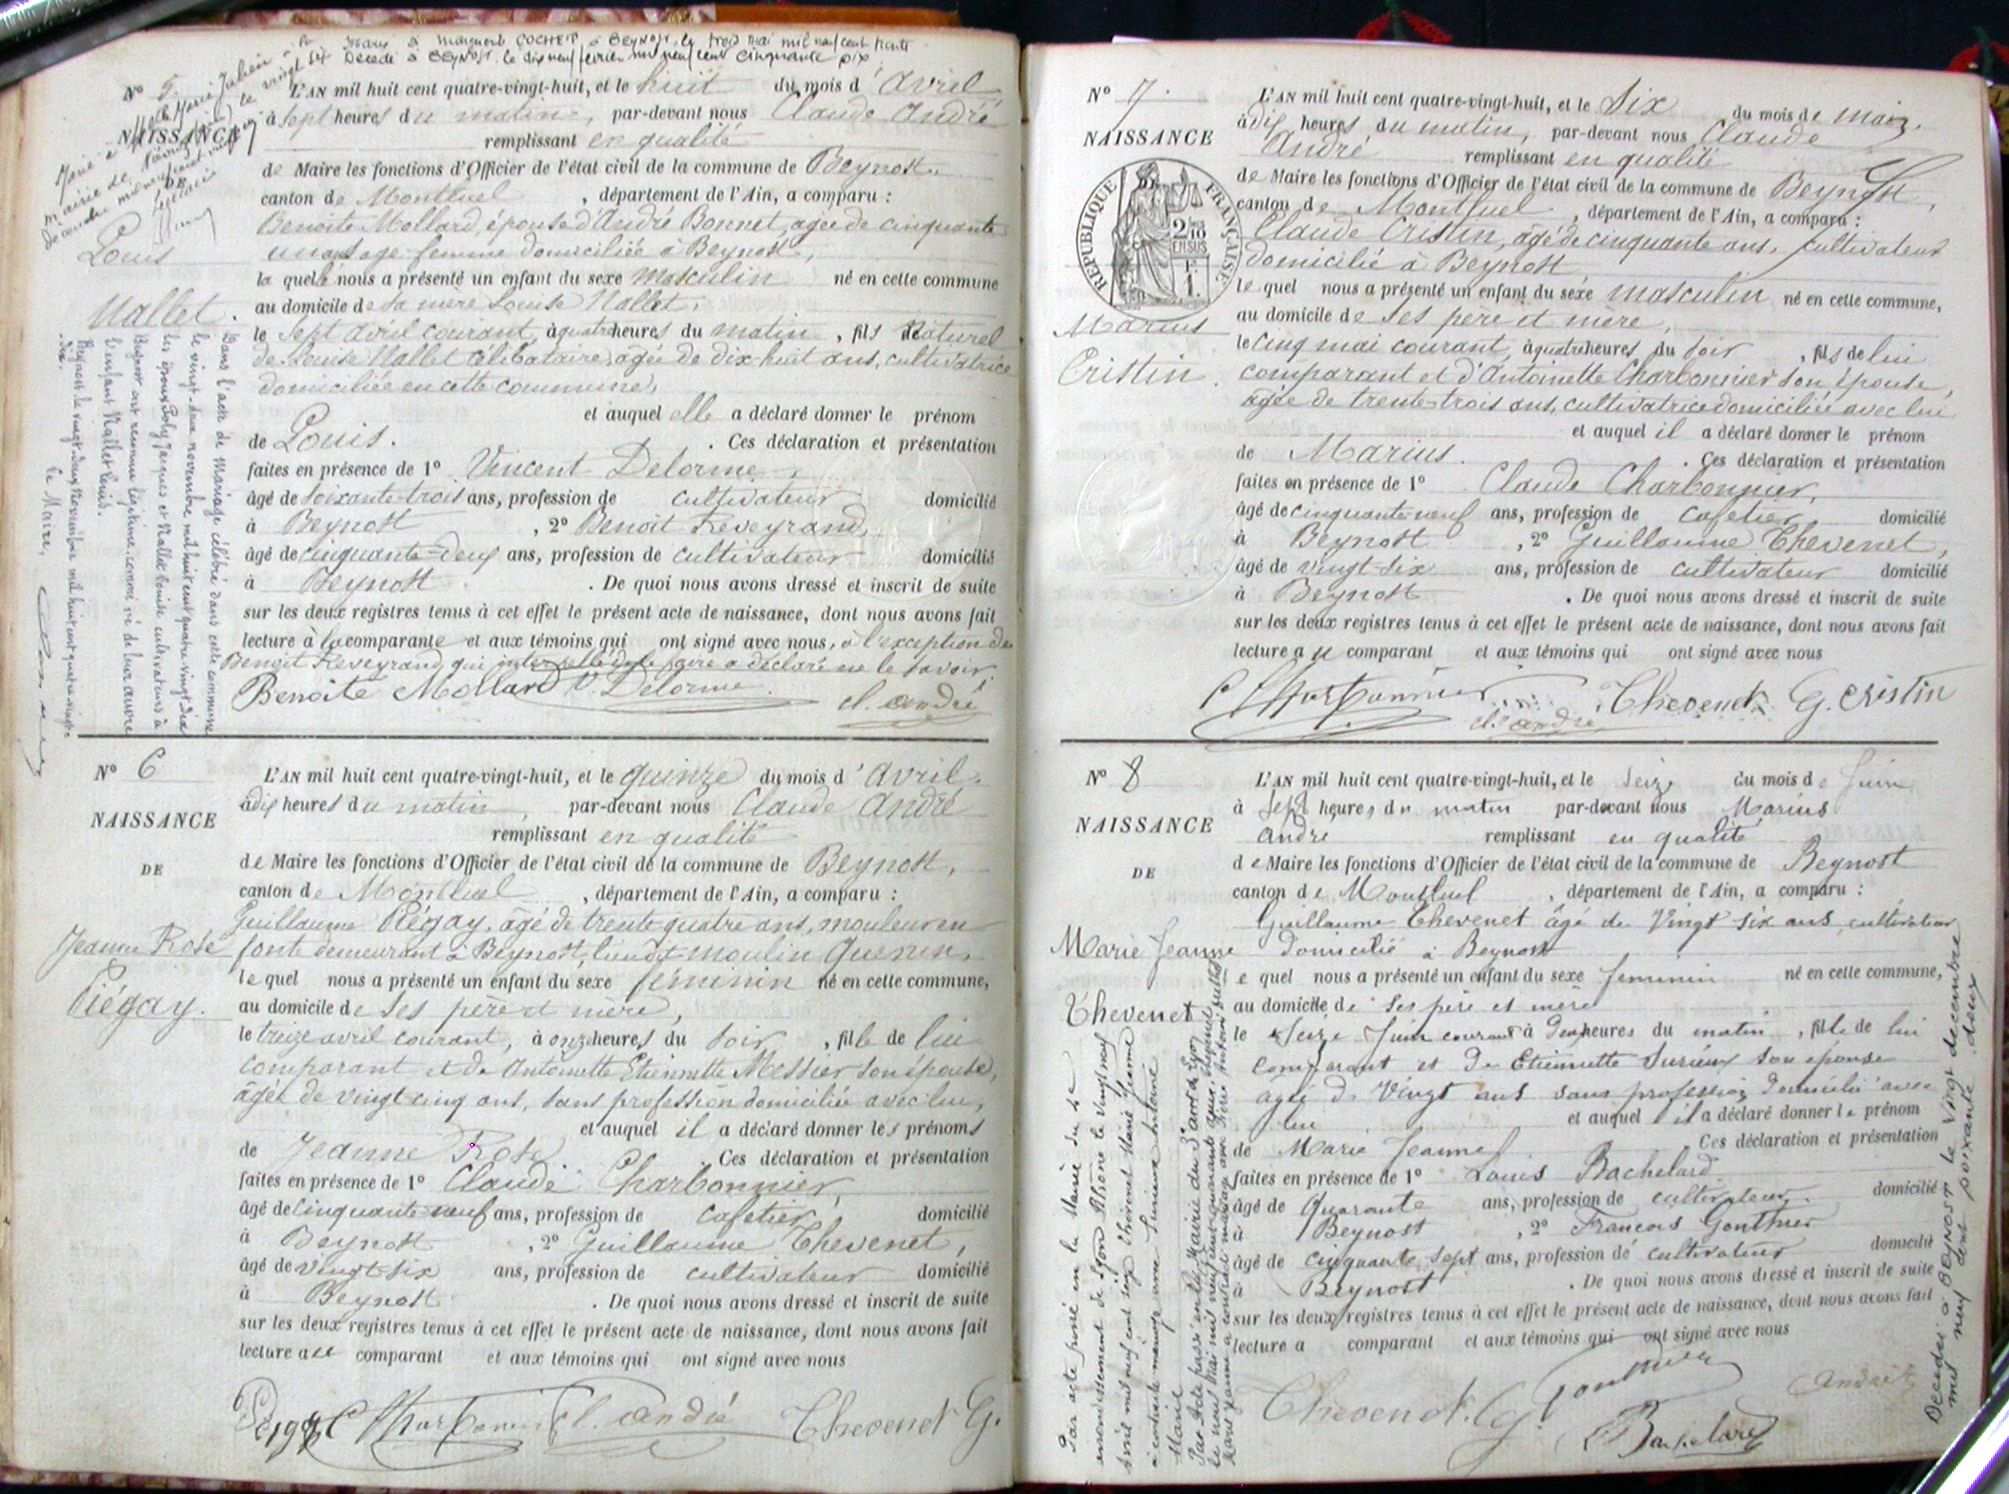 Marié à Marguerite COCHET à BEYNOST, le trois mai mil neuf cent trente
Décédé à BEYNOST le dix neuf février mil neuf cent cinquante six
N° 5.
NAISSANCE
DE
Louis
Nallet.
L'AN mil huit cent quatre-vingt-huit, et le huit du mois d'Avril
à sept heures du matin, par-devant nous Claude André
remplissant en qualité
de Maire les fonctions d'Officier de l'état civil de la commune de Beynost,
canton de Montluel, département de l'Ain, a comparu :
Benoite Mollard, épouse d'André Bonnet, agée de cinquante
un ans sage-femme domiciliée à Beynost,
la quelle nous a présenté un enfant du sexe masculin né en cette commune
au domicile de sa mère Louise Nallet,
le sept avril courant, à quatre heures du matin, fils Naturel
de Louise Nallet célibataire, agée de dix huit ans, cultivatrice
domiciliée en cette commune,
et auquel elle a déclaré donner le prénom
de Louis. Ces déclaration et présentation
faites en présence de 1° Vincent Delorme,
âgé de soixante-trois ans, profession de cultivateur domicilié
à Beynost, 2° Benoît Reveyrand,
âgé de cinquante-deux ans, profession de cultivateur domicilié
à Beynost. De quoi nous avons dressé et inscrit de suite
sur les deux registres tenus à cet effet le présent acte de naissance, dont nous avons fait
lecture à la comparante et aux témoins qui ont signé avec nous, à l'exception de
Benoit Reveyrand, qui interpellé de le faire a déclaré ne le savoir.
Benoite Mollard V. Delorme
cl. andré
Dans l'acte de Mariage célébré dans cette commune
le vingt-deux novembre mil huit cent quatre-vingt dix
les époux Joly Jacques et Nallet Louise cultivateurs à
Beynost ont reconnu & légitimé comme né de leur œuvre
l'enfant Nallet Louis.
Beynost le vingt-deux Novembre mil huit cent quatre-vingt-
dix.
le Maire,
N° 6
NAISSANCE
DE
Jeanne Rose
Piégay.
L'AN mil huit cent quatre-vingt-huit, et le quinze du mois d'avril,
à dix heures du matin, par-devant nous Claude André
remplissant en qualité
de Maire les fonctions d'Officier de l'état civil de la commune de Beynost,
canton de Montluel, département de l'Ain, a comparu :
Guillaume Piégay, âgé de trente quatre ans, mouleur en
fonte demeurant à Beynost, lieudit moulin Guenin,
le quel nous a présenté un enfant du sexe féminin né en cette commune,
au domicile de ses père et mère,
le treize avril courant, à onze heures du soir, fille de lui
comparant et de Antoinette Etiennette Messier son épouse,
âgée de vingt-cinq ans, sans profession domiciliée avec lui,
et auquel il a déclaré donner les prénoms
de Jeanne Rose. Ces déclaration et présentation
faites en présence de 1° Claude Charbonnier,
âgé de cinquante-neuf ans, profession de cafetier, domicilié
à Beynost, 2° Guillaume Thevenet,
âgé de vingt-six ans, profession de cultivateur domicilié
à Beynost. De quoi nous avons dressé et inscrit de suite
sur les deux registres tenus à cet effet le présent acte de naissance, dont nous avons fait
lecture au comparant et aux témoins qui ont signé avec nous
Charbonnier Cl. andré Thevenet G.
N° 7.
NAISSANCE
DE
RÉPUBLIQUE FRANÇAISE
2/10 EN SUS
1.
Marius
Cristin.
L'AN mil huit cent quatre-vingt-huit, et le six du mois de mai,
à dix heures du matin, par-devant nous Claude
André remplissant en qualité
de Maire les fonctions d'Officier de l'état civil de la commune de Beynost,
canton de Montluel, département de l'Ain, a comparu :
Claude Cristin, âgé de cinquante ans, cultivateur
domicilié à Beynost
le quel nous a présenté un enfant du sexe masculin né en cette commune,
au domicile de ses père et mère,
le cinq mai courant, à quatre heures du soir, fils de lui
comparant et d'Antoinette Charbonnier son épouse,
âgée de trente-trois ans, cultivatrice domiciliée avec lui
et auquel il a déclaré donner le prénom
de Marius. Ces déclaration et présentation
faites en présence de 1° Claude Charbonnier,
âgé de cinquante-neuf ans, profession de cafetier, domicilié
à Beynost, 2° Guillaume Thevenet,
âgé de vingt-six ans, profession de cultivateur domicilié
à Beynost. De quoi nous avons dressé et inscrit de suite
sur les deux registres tenus à cet effet le présent acte de naissance, dont nous avons fait
lecture au comparant et aux témoins qui ont signé avec nous
Charbonnier Thevenet G. cristin
cl. andré
N° 8
NAISSANCE
DE
Marie Jeanne
Thevenet
L'AN mil huit cent quatre-vingt-huit, et le seize du mois de Juin
à sept heures du matin par-devant nous Marius
André remplissant en qualité
de Maire les fonctions d'Officier de l'état civil de la commune de Beynost
canton de Montluel, département de l'Ain, a comparu :
Guillaume Thevenet âgé de Vingt six ans cultivateur
domicilié à Beynost
e quel nous a présenté un enfant du sexe feminin né en cette commune,
au domicile de ses père et mère
le Seize Juin courant à deux heures du matin, fille de lui
comparant et de Etiennette Surieux son épouse
agée de Vingt ans sans profession domicilié avec
lui et auquel il a déclaré donner le prénom
de Marie Jeanne. Ces déclaration et présentation
faites en présence de 1° Louis Bachelard
âgé de Quarante ans, profession de cultivateur domicilié
à Beynost, 2° Francois Gonthier
âgé de cinquante sept ans, profession de cultivateur domicilié
à Beynost. De quoi nous avons dressé et inscrit de suite
sur les deux registres tenus à cet effet le présent acte de naissance, dont nous avons fait
lecture a comparant et aux témoins qui ont signé avec nous
Thevenet. G. Gonthier André
Bachelard
Par acte passé en la Mairie du 4e
arrondissement de Lyon Rhône le vingt neuf
Avril mil neuf cent seize Thévenet Marie Jeanne
a contracté mariage avec Antoine
Marie
Par Acte passé en la Mairie du 3e arrt de Lyon
le nous Mai mil neuf cent quarante Thevenet
Marie Jeanne a contracté mariage avec
Decedée à BEYNOST le Vingt decembre
mil neuf cent soixante deux